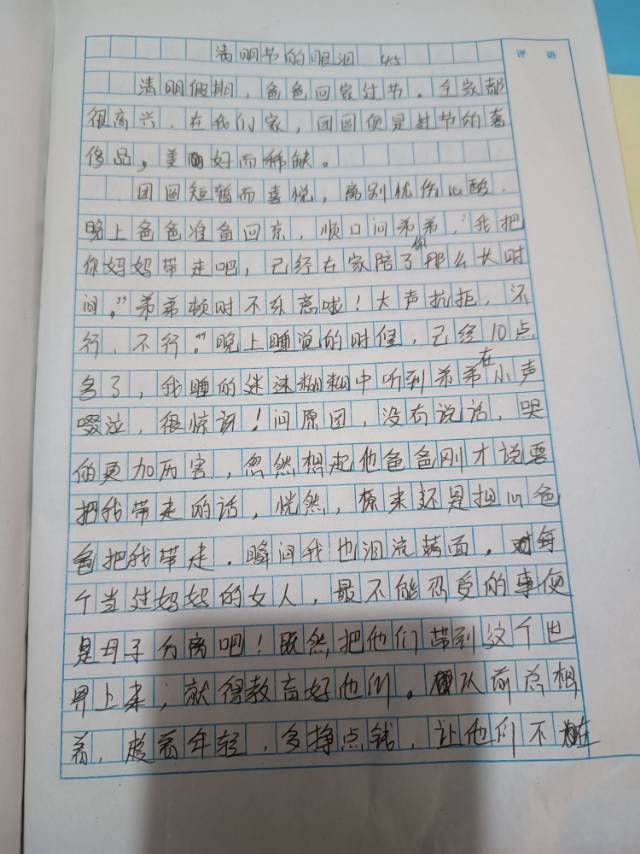 清明节的眼泪 45
评 语
清明假期，爸爸回家过节。全家都
很高兴．在我们家，团圆便是过节的奢
侈品，美好而稀缺。
团圆短暂而喜悦，离别忧伤心酸．
晚上爸爸准备回京，顺口问弟弟，“我把
你妈妈带走吧，已经在家陪了你那么长时
间。”弟弟顿时不乐高啦！大声抗拒，不
行，不行。”晚上睡觉的时候，已经10点
多了，我睡的迷迷糊糊中听到弟弟在小声
啜泣，很惊讶！问原因，没有说话，哭
的更加厉害，忽然想起他爸爸刚才说要
把我带走的话，恍然，原来还是担心爸
爸把我带走．瞬间我也泪流满面。每
个当过妈妈的女人，最不能忍受的事便
是母子分离吧！既然把他们带到这个世
界上来，就得教育好他们。以前总想
着，趁着年轻，多挣点钱，让他们不在